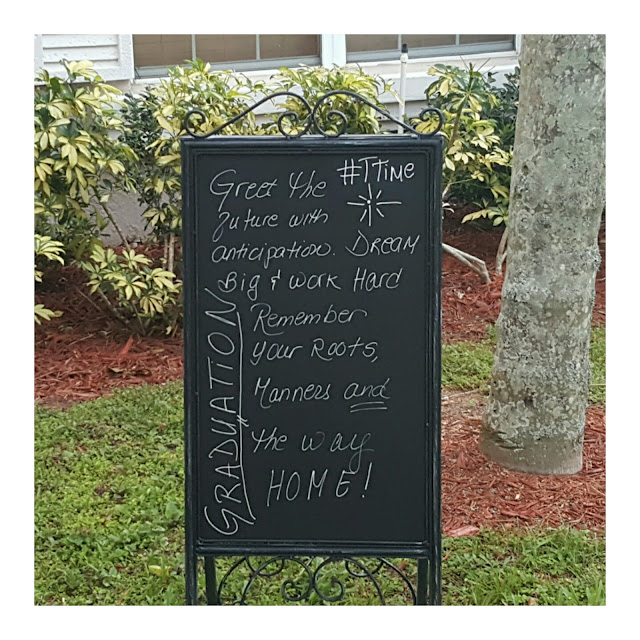 Greet the #TTime
future with
anticipation. DREAM
Big & work Hard
Remember
your Roots,
Manners and
the way
HOME!
GRADUATION